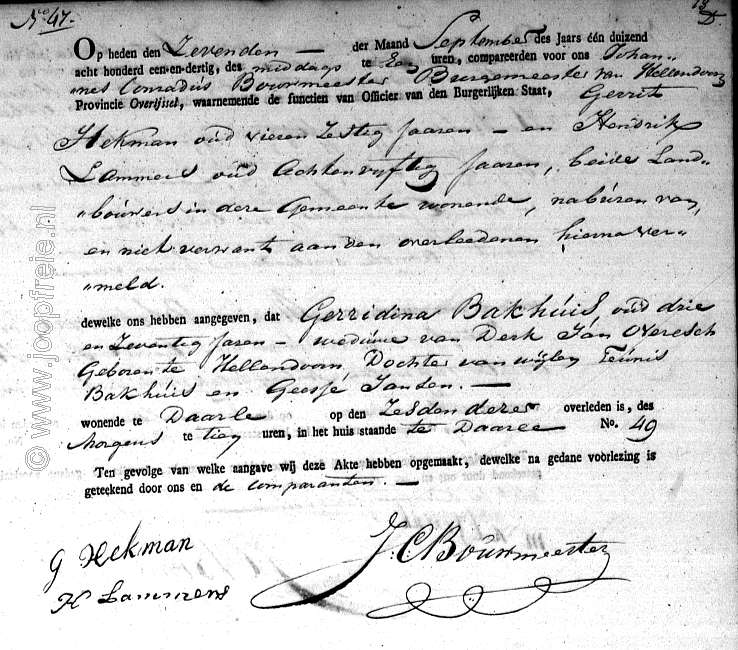 No 47.
Op heden den Zevenden — der Maand September des Jaars één duizend
acht honderd een-en-dertig, des middags te Een uren, compareerden voor ons Johan-
nes Conradus Bouwmeester Burgemeester van Hellendoorn
Provincie Overijssel, waarnemende de functien van Officier van den Burgerlijken Staat, Gerrit
Hekman oud vieren Zesteg Jaaren — en Hendrik
Lammers oud Achtenvyfteg Jaaren, beide Land-
"bouwers in deze Gemeente wonende, naburen van,
en niet verwant aan den overleedenen hierna ver-
"meld.
dewelke ons hebben aangegeven, dat Gerridina Bakhúis, oud drie
en Zeventeg Jaren — weduwe van Derk Jan Overesch
Geboren te Hellendoorn Dochter van wylen Teunis
Bakhuis en Geesje Jansen. —
wonende te Daarle op den Zesden dezer overleden is, des
Morgens te tien uren, in het huis staande te Daarle No. 49
Ten gevolge van welke aangave wij deze Akte hebben opgemaakt, dewelke na gedane voorlezing is
geteekend door ons en de comparanten. —
G Hekman
H Lammers
J. C. Bouwmeester
© www.joopfreie.nl